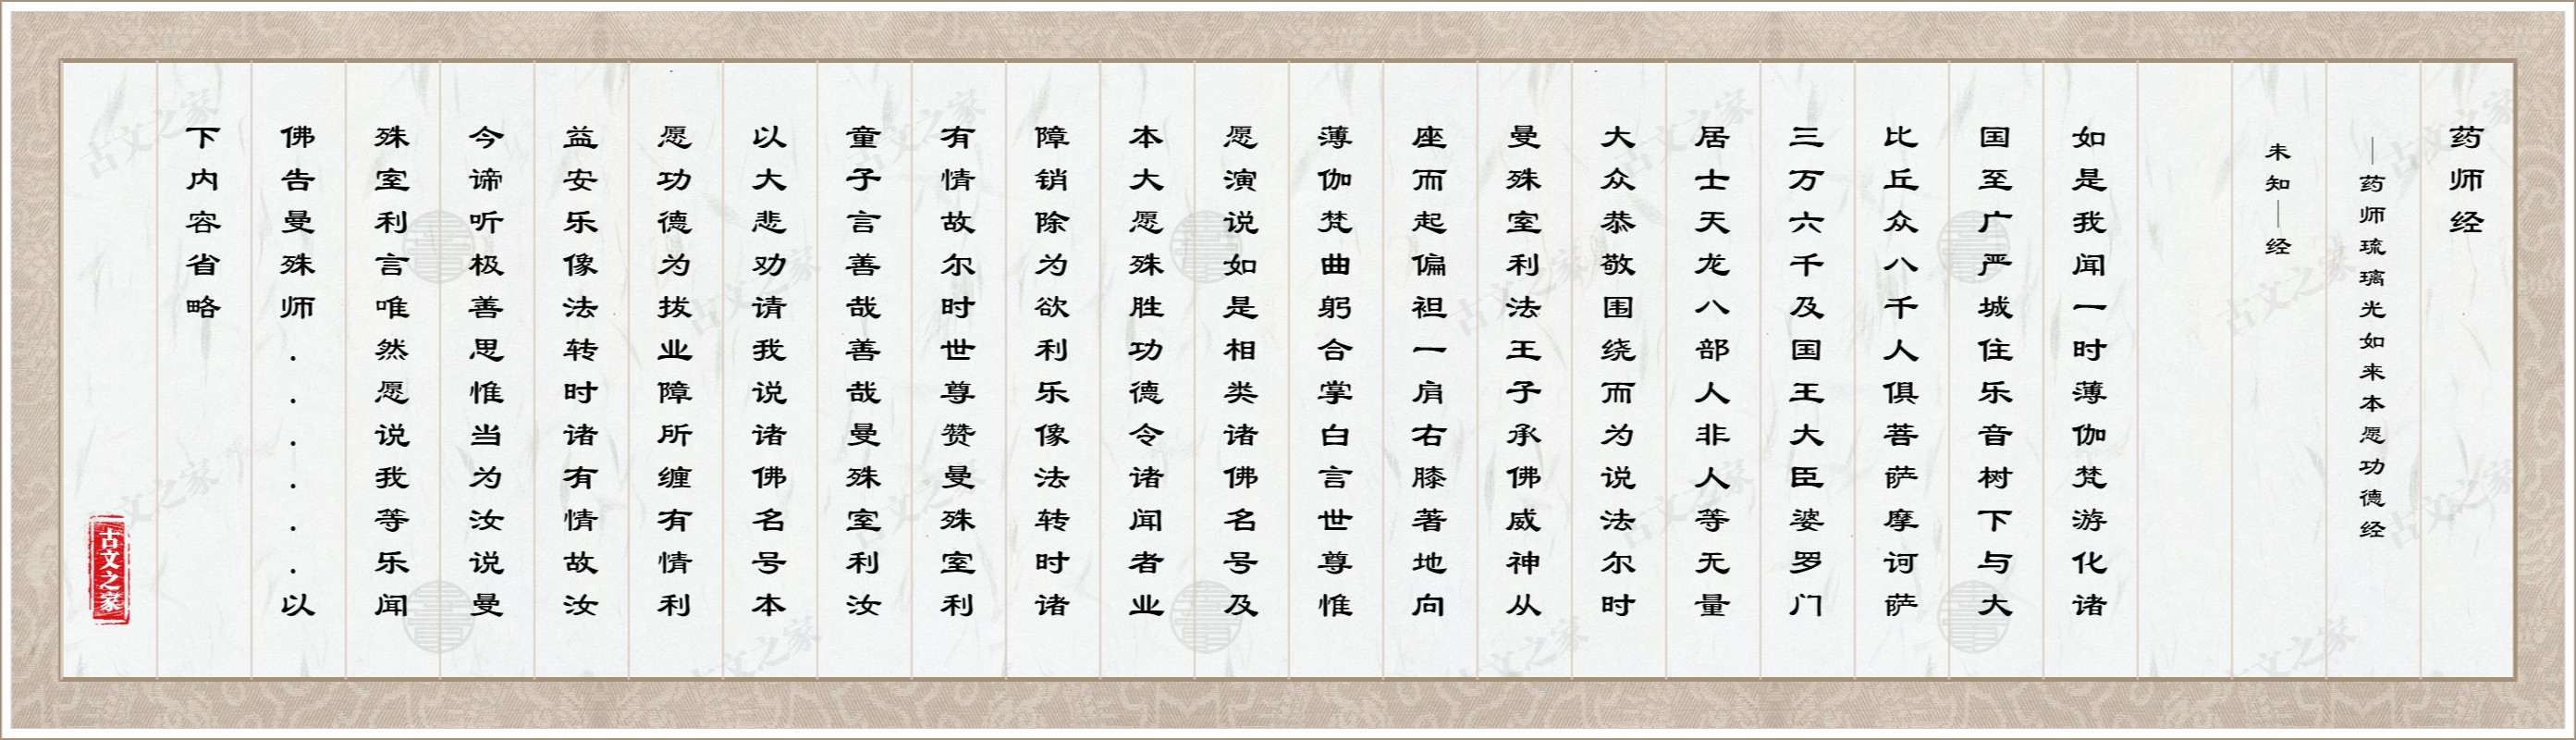 药师经
—药师琉璃光如来本愿功德经
未知—经
如是我闻一时薄伽梵游化诸
国至广严城住乐音树下与大
比丘众八千人俱菩萨摩诃萨
三万六千及国王大臣婆罗门
居士天龙八部人非人等无量
大众恭敬围绕而为说法尔时
曼殊室利法王子承佛威神从
座而起偏袒一肩右膝著地向
薄伽梵曲躬合掌白言世尊惟
愿演说如是相类诸佛名号及
本大愿殊胜功德令诸闻者业
障销除为欲利乐像法转时诸
有情故尔时世尊赞曼殊室利
童子言善哉善哉曼殊室利汝
以大悲劝请我说诸佛名号本
愿功德为拔业障所缠有情利
益安乐像法转时诸有情故汝
今谛听极善思惟当为汝说曼
殊室利言唯然愿说我等乐闻
佛告曼殊师......以
下内容省略
古文之家